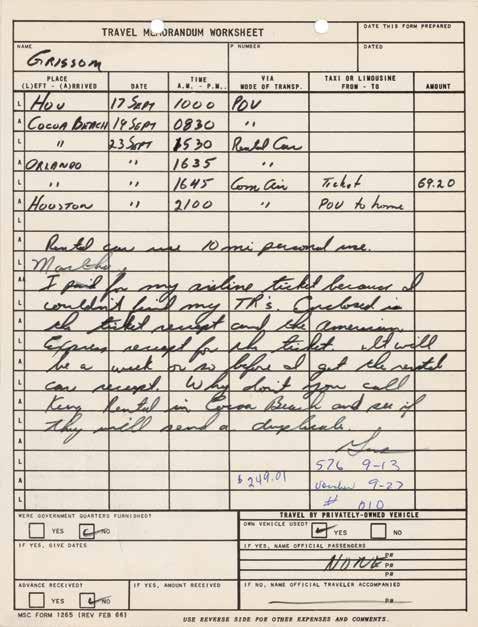 TRAVEL MEMORANDUM WORKSHEET
DATE THIS FORM PREPARED
NAME
GRISSOM
P NUMBER
DATED
PLACE (L)EFT - (A)RRIVED DATE TIME A.M. - P.M. VIA MODE OF TRANSP. TAXI OR LIMOUSINE FROM - TO AMOUNT
L HOU 17 SEPT 1000 POV
A COCOA BEACH 19 SEPT 0830 "
L " 23 SEPT 1530 Rental Car
A ORLANDO " 1635 "
L " " 1645 Com Air Ticket 69.20
A HOUSTON " 2100 " POV to home
L
A Rental car use 10 mi personal use.
L Martha,
A I paid for my airline ticket because I
L couldn't find my TR's. Enclosed is
A the ticket receipt and the American
L Express receipt for the ticket. It will
A be a week or so before I get the rental
L car receipt. Why don't you call
A Key Rental in Cocoa Beach and see if
L they will send a duplicate.
A Gus
L 576 9-13
A $249.01 voucher 9-27
L # 010
WERE GOVERNMENT QUARTERS FURNISHED?
YES NO
IF YES, GIVE DATES
TRAVEL BY PRIVATELY-OWNED VEHICLE
OWN VEHICLE USED?
YES NO
IF YES, NAME OFFICIAL PASSENGERS
NONE P#
P#
ADVANCE RECEIVED?
YES NO
IF YES, AMOUNT RECEIVED
IF NO, NAME OFFICIAL TRAVELER ACCOMPANIED
P#
MSC FORM 1265 (REV FEB 66)
USE REVERSE SIDE FOR OTHER EXPENSES AND COMMENTS.